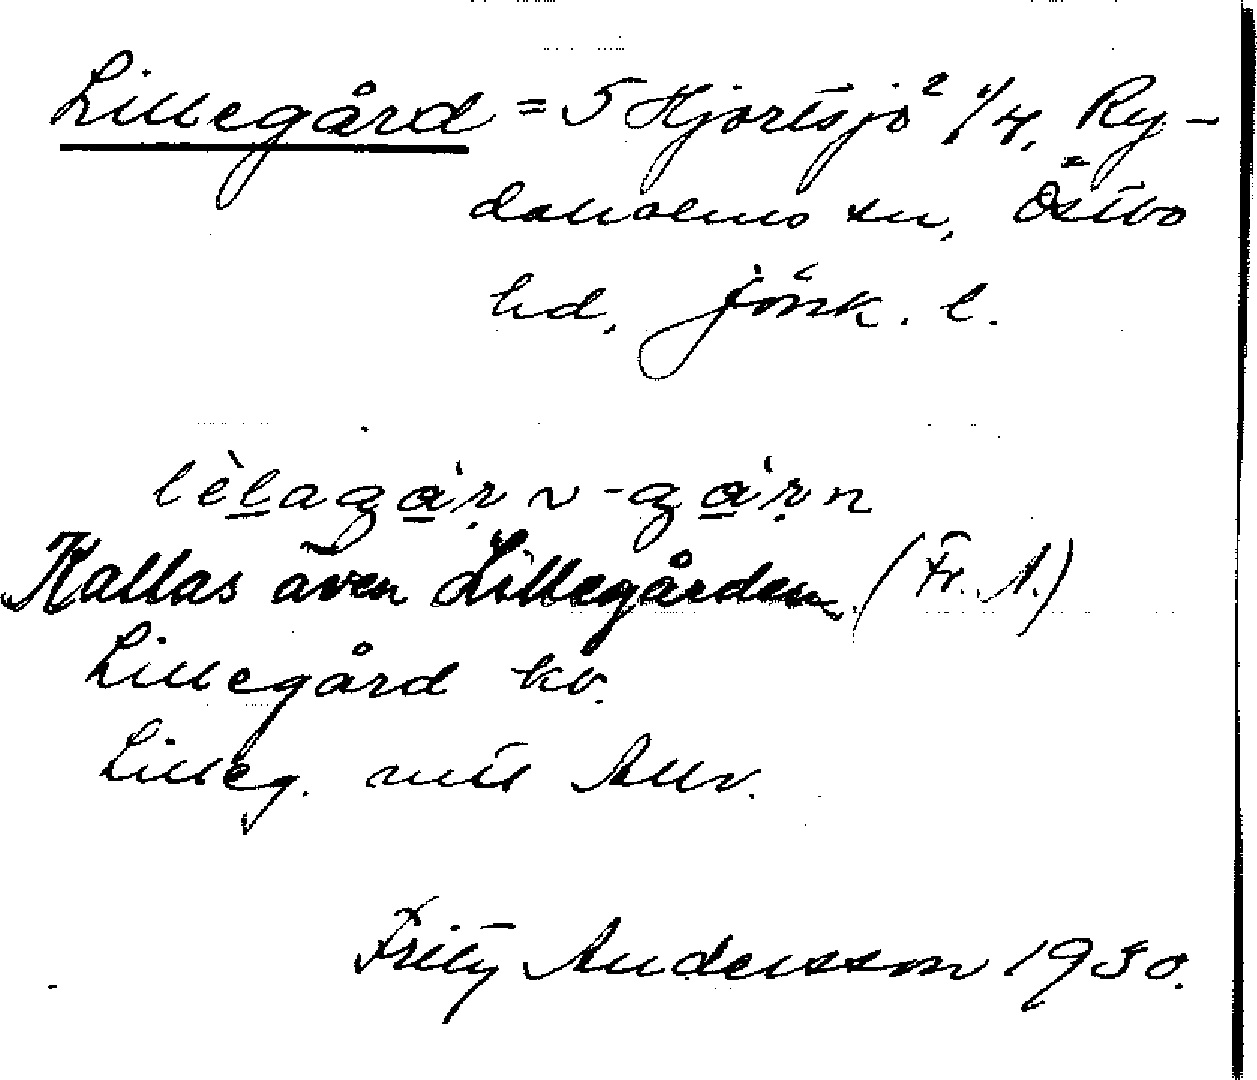 Lillegård = 5 Hjortsjö 2 1/4, Ry-
daholms sn, Östbo
hd, Jönk. l.
lèlaga'r ~ -ga'rn
Kallas även Lillegården (Fr. A.)
Lillegård kv.
Lilleg. mtl Allv.
Fritz Andersson 1930.